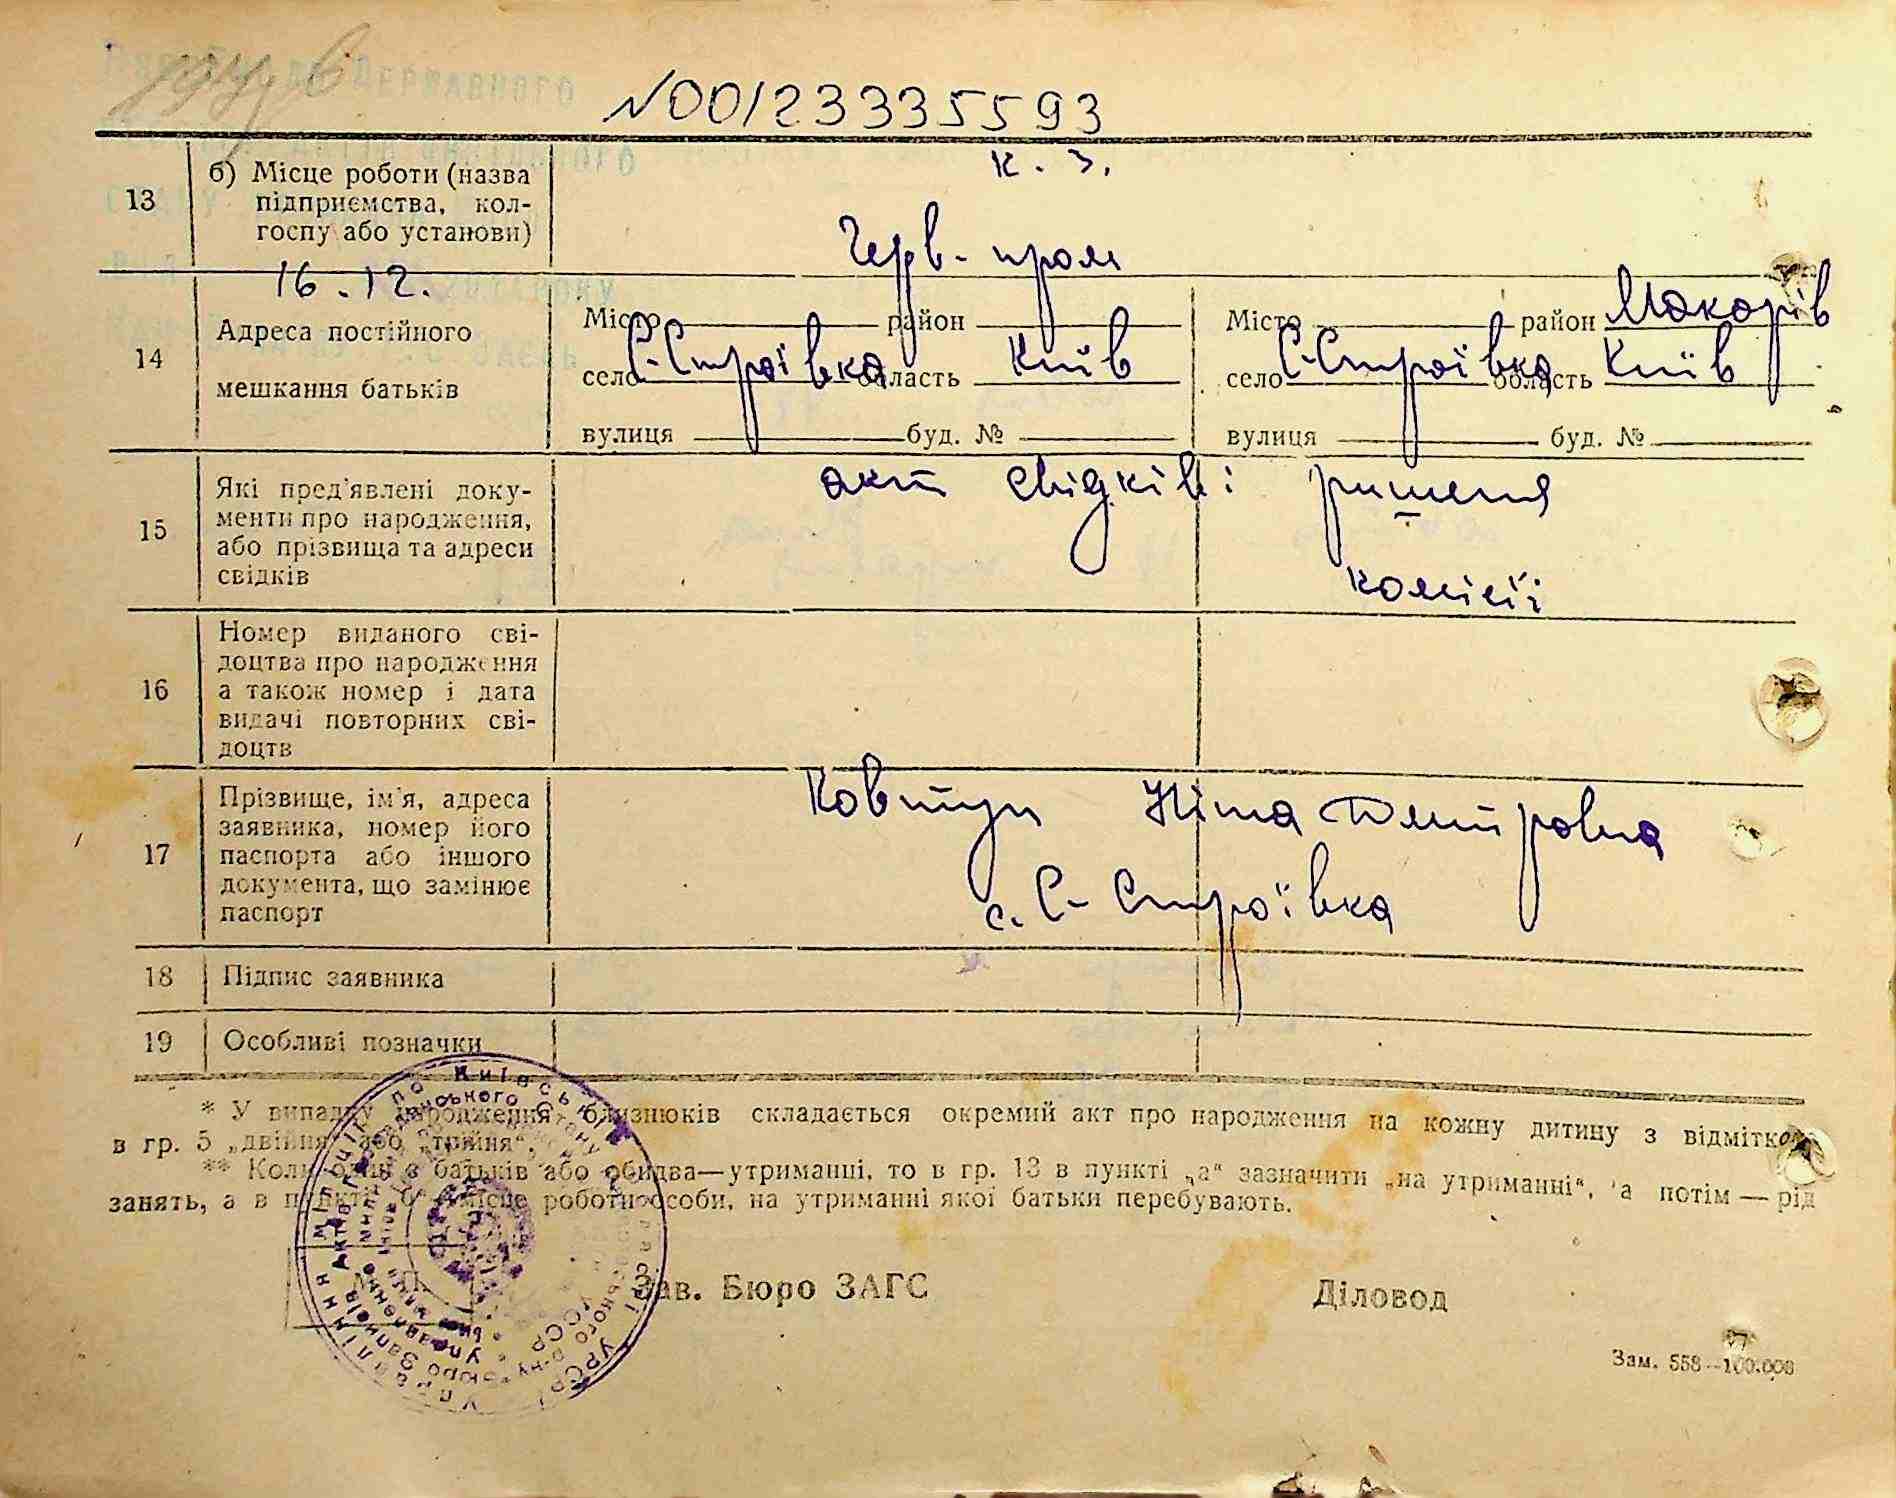 N001233335593
13
б) Місце роботи (назва
підприємства, кол-
госпу або установи)
к. з.
Черв- пром
16.12.
14
Адреса постійного
мешкання батьків
Місто район
село С-Строївка область Київ
вулиця буд. №
Місто район Макорів
село С-Строївка область Київ
вулиця буд. №
15
Які пред'явлені доку-
менти про народження,
або прізвища та адреси
свідків
акт свідків і ришення
комісії
16
Номер виданого сві-
доцтва про народження
а також номер і дата
видачі повторних сві-
доцтв
17
Прізвище, ім'я, адреса
заявника, номер його
паспорта або іншого
документа, що замінює
паспорт
Ковтун Ніна Дмитровна
с. С- Строївка
18
Підпис заявника
19
Особливі позначки
* У випадку народження близнюків складається окремий акт про народження на кожну дитину з відміткою
в гр. 5 „двійня" або „трійня".
** Коли один з батьків або обидва—утриманні, то в гр. 13 в пункті „а" зазначити „на утриманні", а потім — рід
занять, а в пункті „б" місце роботи особи, на утриманні якої батьки перебувають.
М. П.
Зав. Бюро ЗАГС
Діловод
Зам. 558—100.000